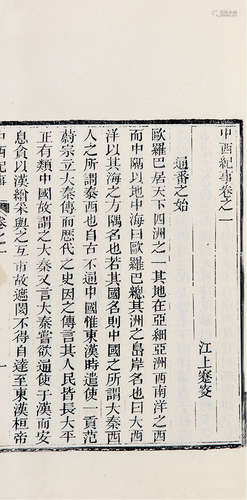 中西紀事卷之一
江上蹇叟
通番之始
歐羅巴居天下四洲之一其地在亞細亞洲西南洋之西
而中隔以地中海曰歐羅巴總其洲之島岸名也曰大西
洋以其海之方隅名也若其國名則中國所謂大秦西
人之所謂泰西也自古不通中國惟東漢時遣使一貢范
蔚宗立大秦傳而歷代之史因之傳言其人民皆長大平
正有類中國故謂之大秦又言大秦嘗欲通使于漢而安
息貪以漢繒綵與之互市故遮閡不得自達至東漢桓帝
中西紀事
卷之一
一